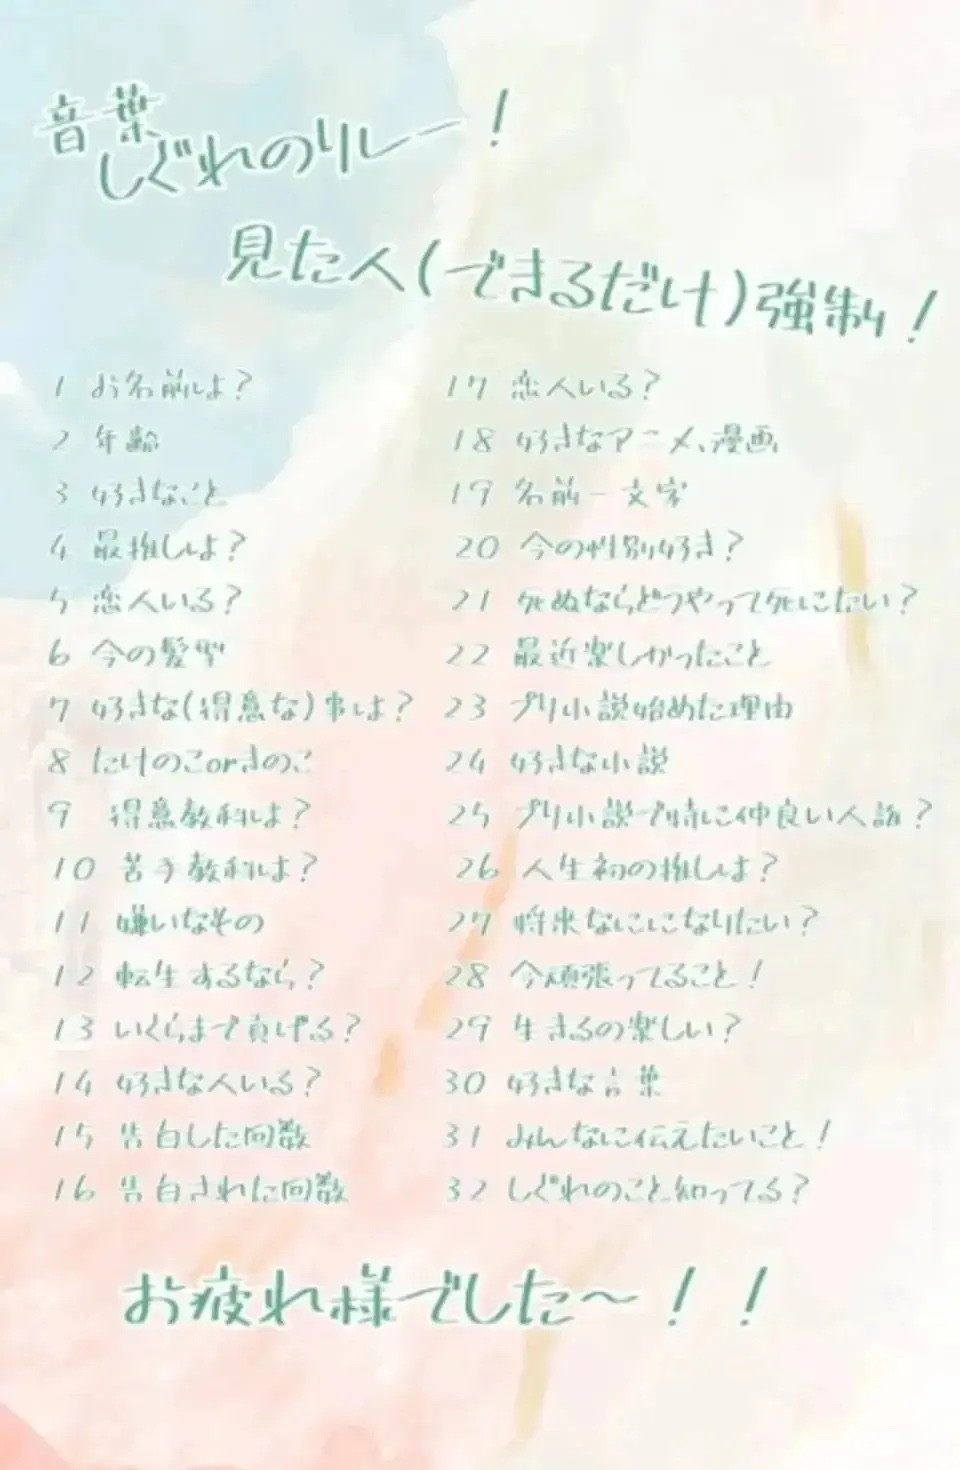 音葉
しぐれのリレー!
見た人(できるだけ)強制!
1 お名前しよ?
2 年齢
3 好きなこと
4 最推しは?
5 恋人いる?
6 今の髪型
7 好きな(得意な)事は?
8 たけのこorきのこ
9 得意教科は?
10 苦手教科は?
11 嫌いなもの
12 転生するなら?
13 いくらまで貢げる?
14 好きな人いる?
15 告白した回数
16 告白された回数
17 恋人いる?
18 好きなアニメ、漫画
19 名前一文字
20 今の性別好き?
21 死ぬならどうやって死にたい?
22 最近楽しかったこと
23 プリ小説始めた理由
24 好きな小説
25 プリ小説で特に仲良い人誰?
26 人生初の推しは?
27 将来なにになりたい?
28 今頑張ってること!
29 生きるの楽しい?
30 好きな言葉
31 みんなに伝えたいこと!
32 しぐれのこと知ってる?
お疲れ様でした〜!!